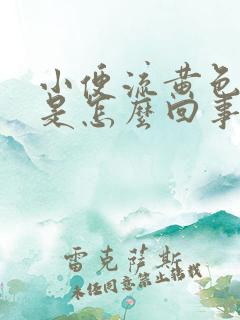 小便流黄色
是怎麽回事
雷克萨斯
未经同意禁止转载